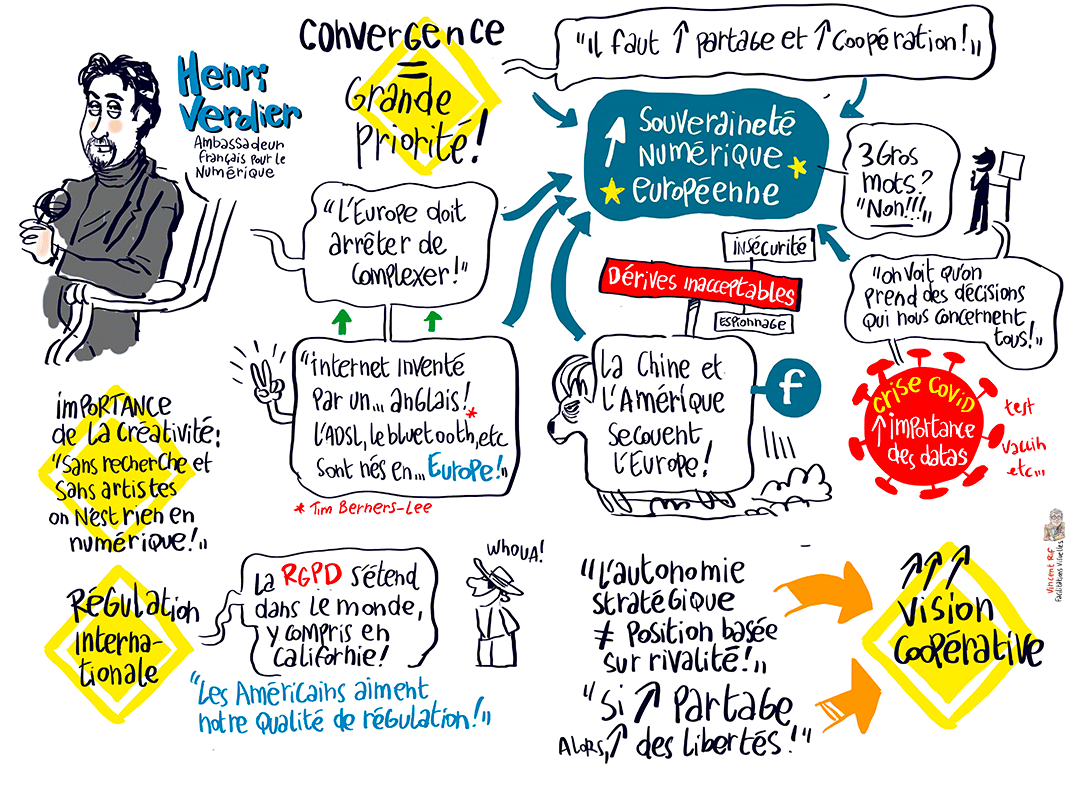 Henri
Verdier
Ambassadeur
français pour le
numérique
Convergence
=
Grande
Priorité!
"Il faut ↑ partage et ↑ coopération!"
↑ Souveraineté
numérique
européenne
3 Gros
mots?
"Non!!!"
"L'Europe doit
arrêter de
complexer!"
insécurité
Dérives inacceptables
Espionnage
"on voit qu'on
prend des décisions
qui nous concernent
tous!"
"internet inventé
par un... anglais!*
L'ADSL, le bluetooth, etc
sont nés en... Europe!"
* Tim Berners-Lee
La Chine et
L'Amérique
secouent
l'Europe!
f
Crise Covid
↑ importance
des datas
test
vaccin
etc...
importance
de la créativité:
"Sans recherche et
sans artistes
on n'est rien en
numérique!"
Régulation
Interna-
tionale
La RGPD s'étend
dans le monde,
y compris en
Californie!
WHOUA!
"Les Américains aiment
notre qualité de régulation!"
"L'autonomie
stratégique
≠ Position basée
sur rivalité!"
"Si ↑ Partage
Alors, ↑ des libertés!"
↑↑↑
Vision
coopérative
Vincent Rif
Facilitations Visuelles